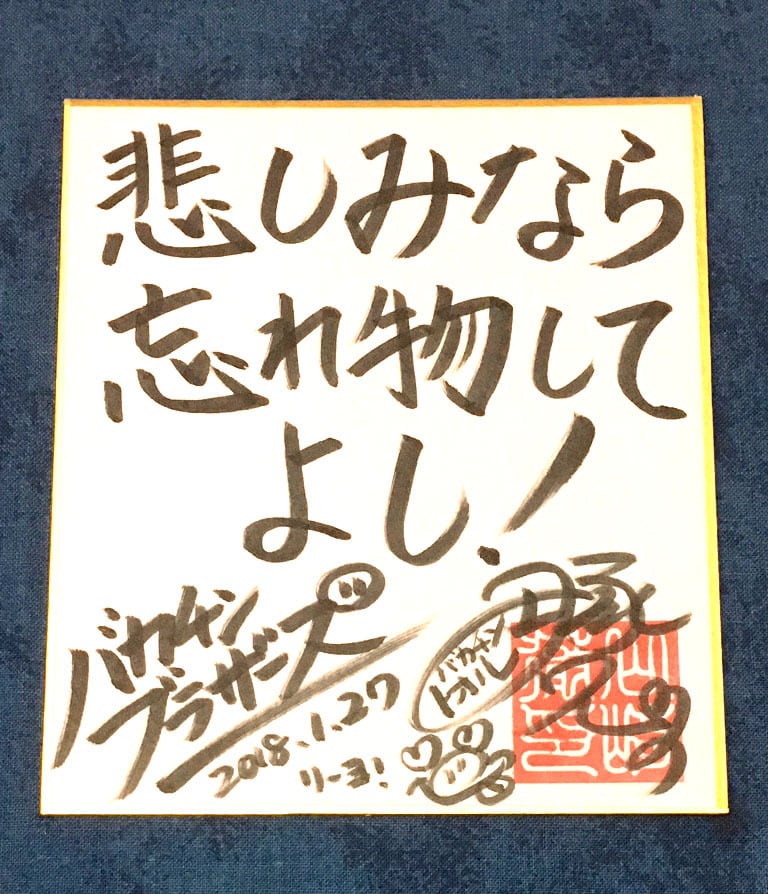 悲しみなら
忘れ物して
よし!
バカムン
ブラザーズ
2018.1.27
リーヨ!
トオル